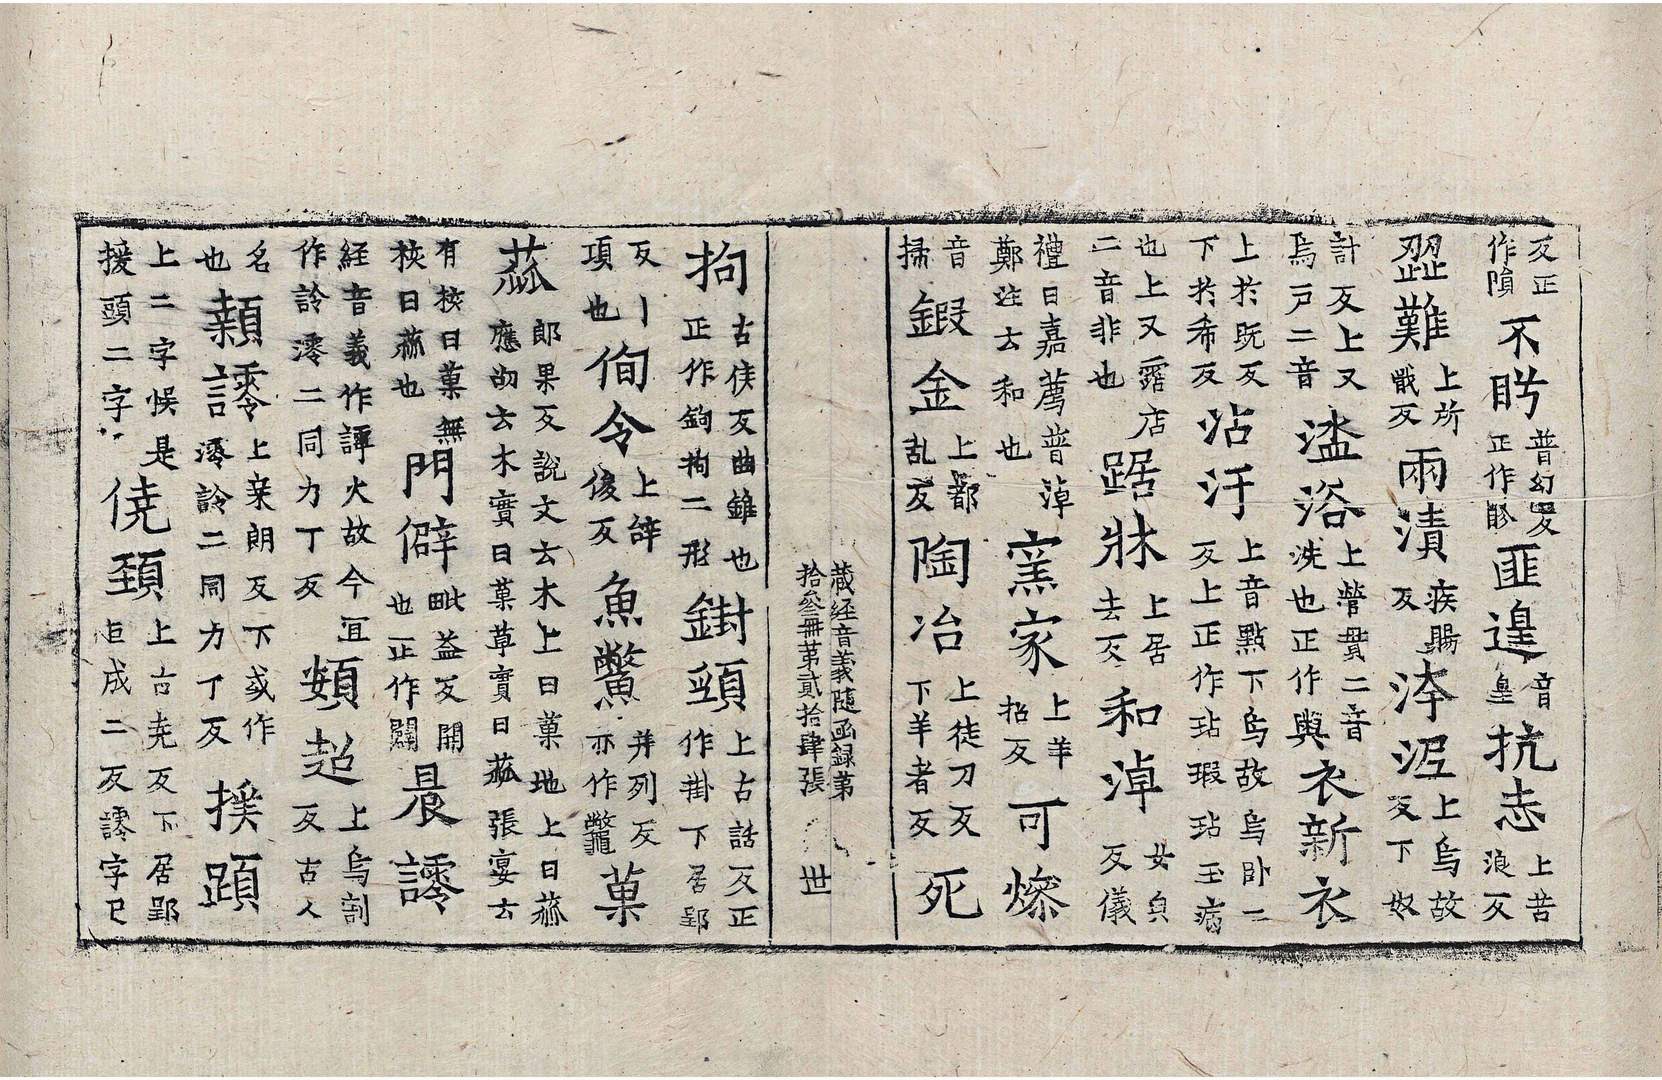 反正作隫不盻普幻反正作盼匪遑音皇抗志上苦浪反
歰難上所戢反兩漬疾賜反洿涩上烏故反下奴
計反上又烏戸二音盓浴上營貫二音洗也正作與衣新衣
上扵既反下扵希反沾汙上音點下烏故烏卧二反上正作玷瑕玷玉病
也上又露店二音非也踞牀上居去反和淖女皃反儀
禮曰嘉薦普淖鄭注去和也窯家上羊招反可燦
音掃鍛金上都乱反陶冶上徒刀反下羊者反死
藏経音義隨函録第
拾叄冊苐貳拾肆張 世
拘古侯反曲錐也正作鉤拘二形䤥頭上古話反正作掛下居郢
反丨項也侚令上辝俊反魚鱉并列反亦作鼈菓
蓏郎果反說文去木上曰菓地上曰蓏應劭去木實曰菓草實曰蓏張宴去
有核曰菓無核曰蓏也門僻毗益反開也正作闢晨䨩
経音義作譚火故今冝作詅澪二同力丁反頞趙上烏割反古人
名也顙䨩上桒朗反下或作澪詅二同力丁反撲頭
上二字悮是援頭二字僥頚上古尭反下居郢巨成二反䨩字已